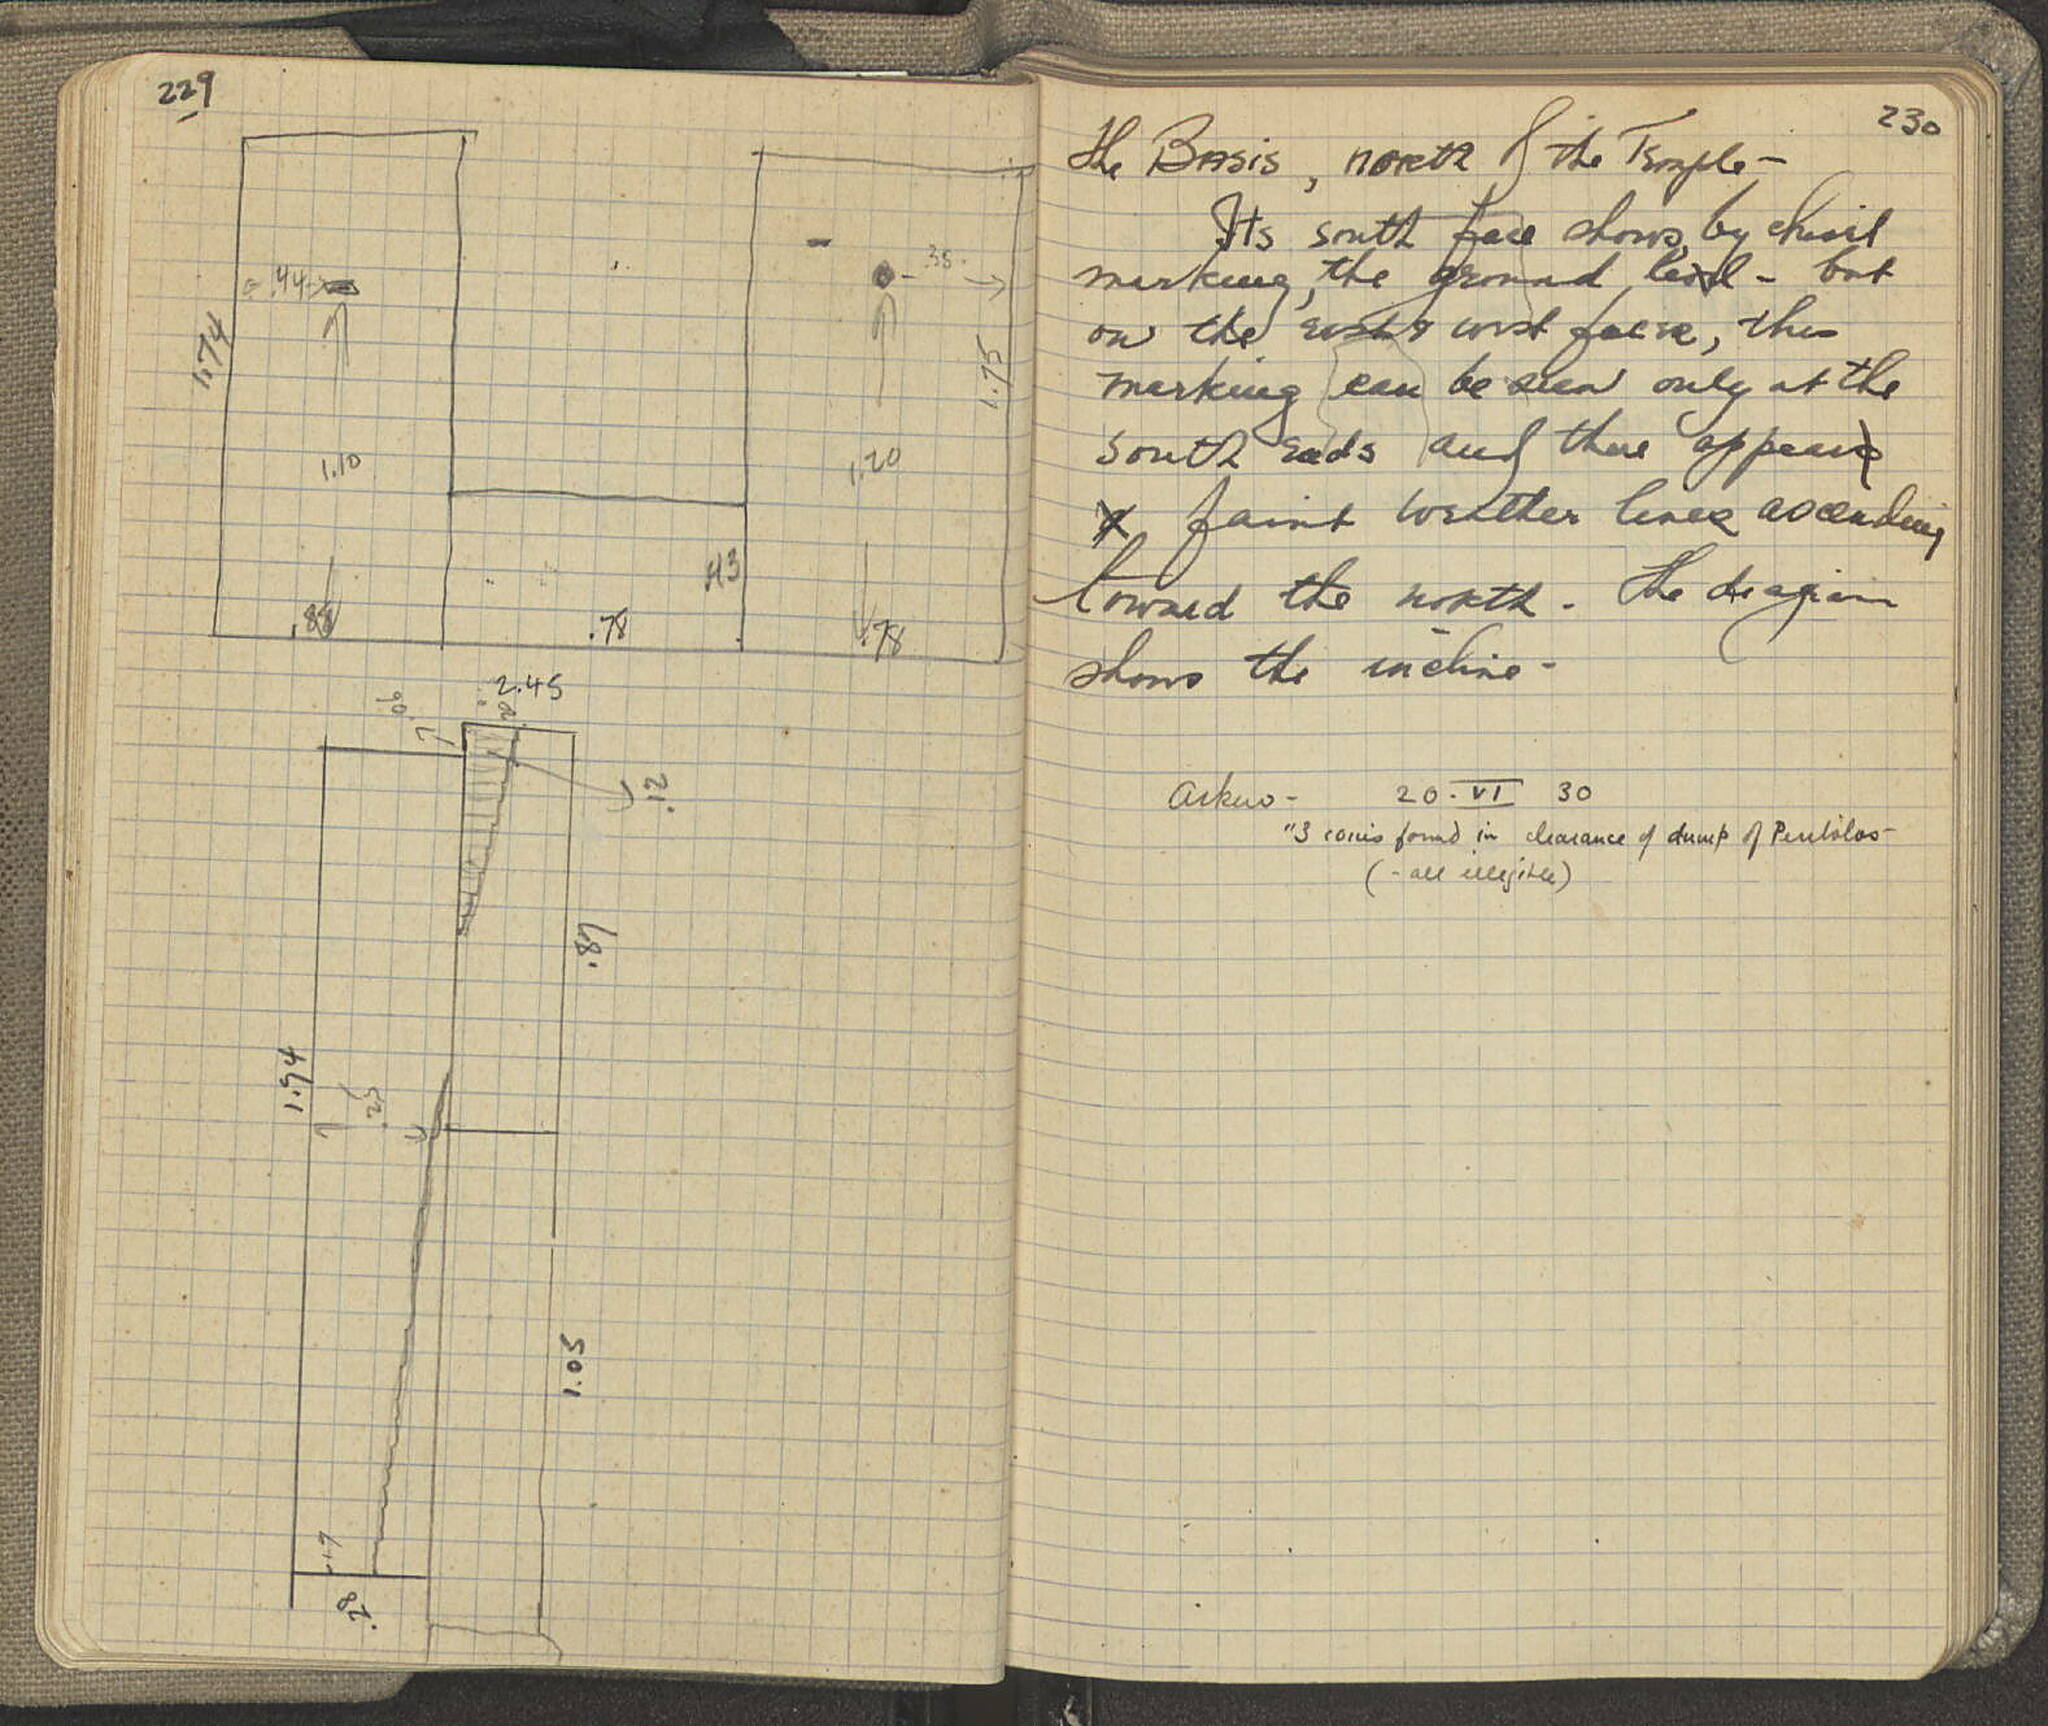 229
.44
.35
1.74
1.75
1.10
1.20
.43
.88
.78
.78
2.45
.12
.87
1.94
.25
1.05
.17
.28
230
The Basis, north of the Temple -
Its south face shows, by chisel
marking, the ground level - but
on the east & west faces, this
marking can be seen only at the
south ends and there appear
faint weather lines ascending
toward the north. The diagram
shows the incline -
20 · VI 30
"3 coins found in clearance of dump of Peribolos -
(- all illegible)